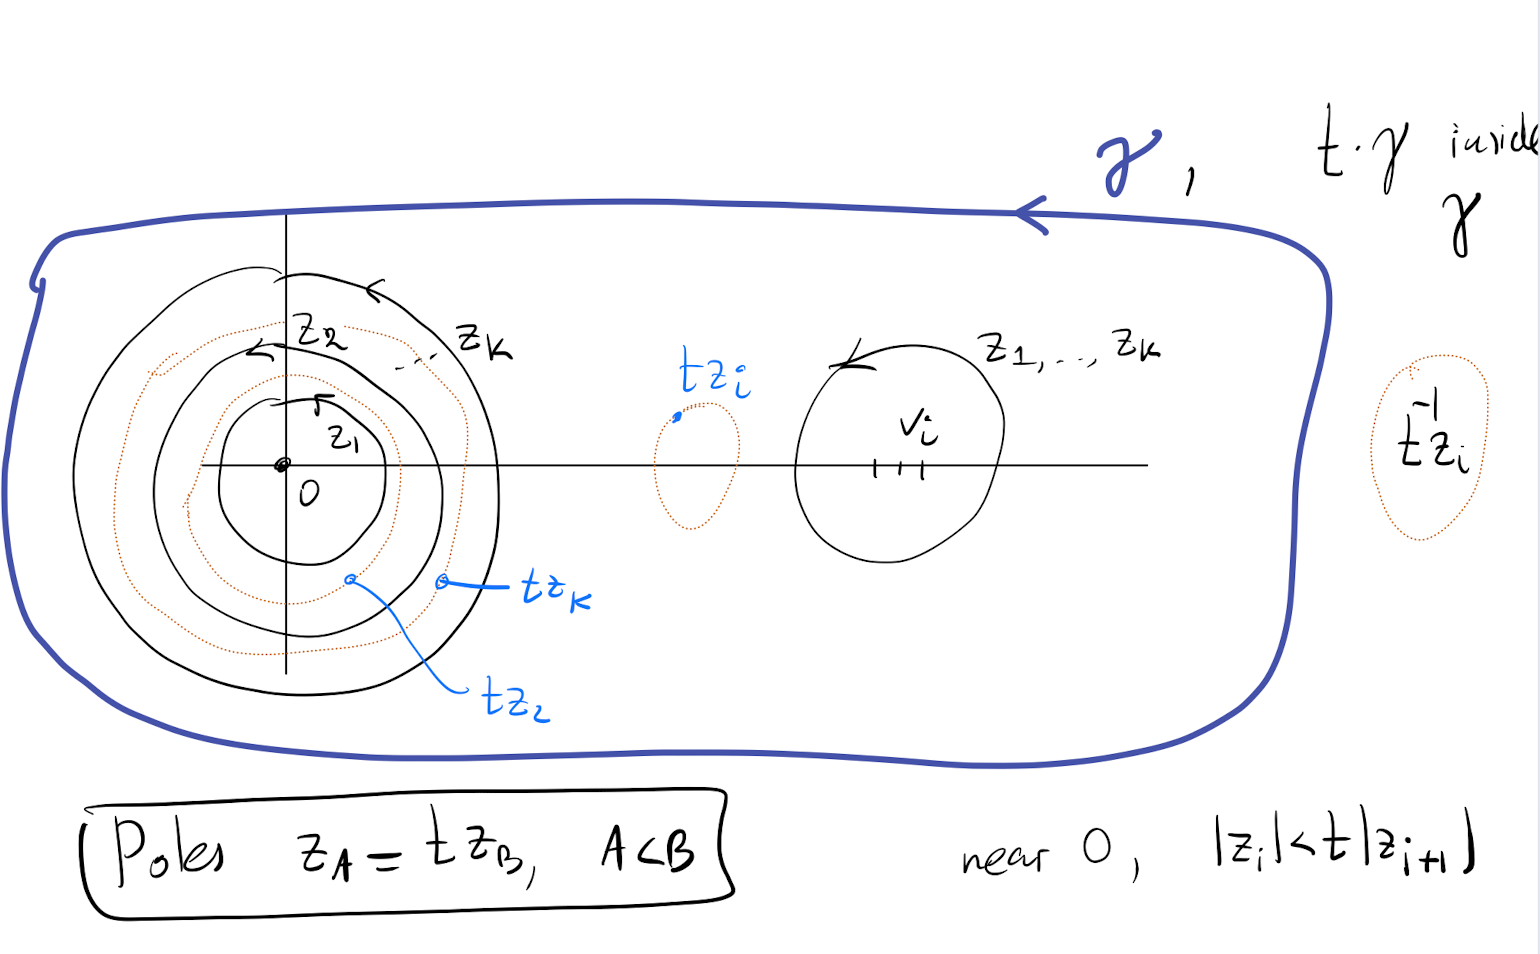 γ, t·γ inside
γ
z₂
z_K
z₁
0
tz_i
z₁, ..., z_K
v_i
t⁻¹z_i
tz_K
tz₂
Poles z_A = t z_B, A<B
near 0, |z_i| < t|z_{i+1}|